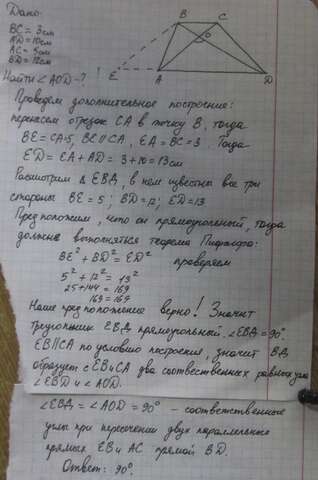 Дано:
BC = 3см
AD = 10см
AC = 5см
BD = 12см
Найти ∠AOD-?
B C
O
E A D
Проведем дополнительное построение:
перенесем отрезок CA в точку B, тогда
BE = CA = 5, BC || CA, EA = BC = 3. Тогда
ED = EA + AD = 3 + 10 = 13 см
Рассмотрим Δ ЕВД, в нем известны все три
стороны BE = 5; BD = 12; ED = 13
Предположим, что он прямоугольный, тогда
должна выполняться теорема Пифагора:
BE² + BD² = ED² проверяем
5² + 12² = 13²
25 + 144 = 169
169 = 169
Наше предположение верно! Значит
треугольник ЕВД прямоугольный. ∠ЕВД = 90°.
EB || CA по условию построения, значит ВД
образует с ЕВ и СА два соотвественных равных угла
∠EBD и ∠AOD.
∠ЕВД = ∠AOD = 90° - соответственные
углы при пересечении двух параллельных
прямых EB и AC прямой BD.
Ответ: 90°.